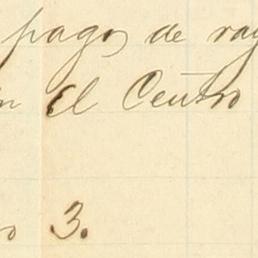 pagos de ray
en el Centro
o 3.